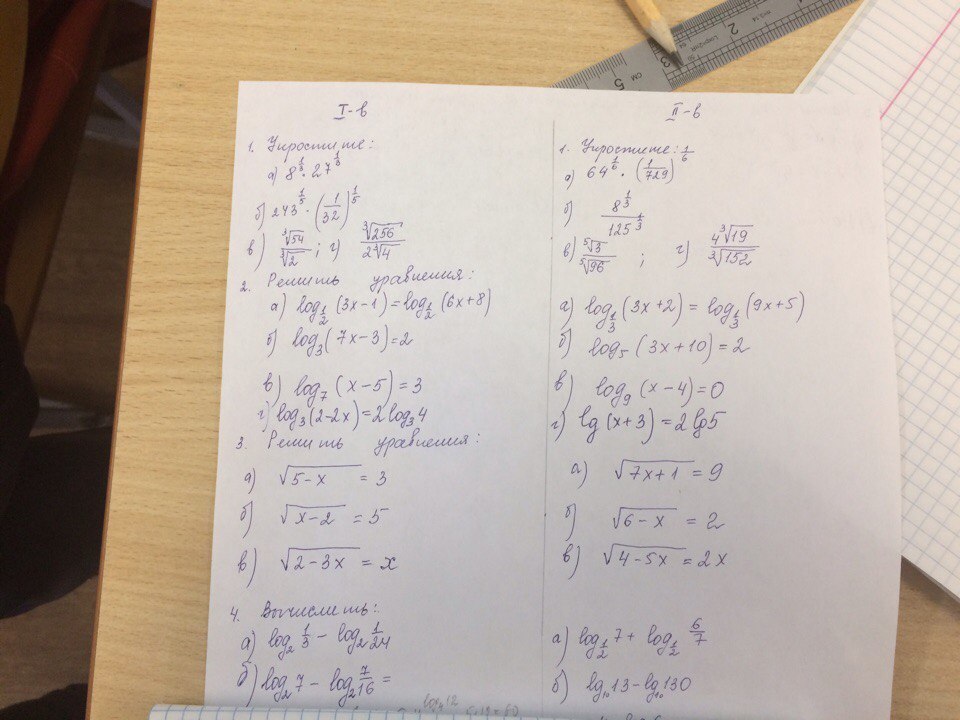 I-в
1. Упростите:
а) 8^(1/3) · 27^(1/3)
б) 243^(1/5) · (1/32)^(1/5)
в) ∛54/∛2 ; г) ∛256/2∛4
2. Решить уравнения:
а) log_(1/2) (3x-1) = log_(1/2) (6x+8)
б) log₃(7x-3)=2
в) log₇(x-5)=3
г) log₃(2-2x)=2log₃4
3. Решить уравнения:
а) √(5-x) = 3
б) √(x-2) = 5
в) √(2-3x) = x
4. Вычислить:
а) log₂ 1/3 - log₂ 1/24
б) log₂7 - log₂ 7/16 =
II-в
1. Упростите:
а) 64^(1/6) · (1/729)^(1/6)
б) 8^(1/3)/125^(1/3)
в) ⁵√3/⁵√96 ; г) 4∛19/∛152
а) log_(1/3) (3x+2) = log_(1/3) (9x+5)
б) log₅(3x+10)=2
в) log₉(x-4)=0
г) lg(x+3)=2lg5
а) √(7x+1) = 9
б) √(6-x) = 2
в) √(4-5x) = 2x
а) log_(1/2) 7 + log_(1/2) 6/7
б) lg₁₀13-lg₁₀130
СМ
5
3
2